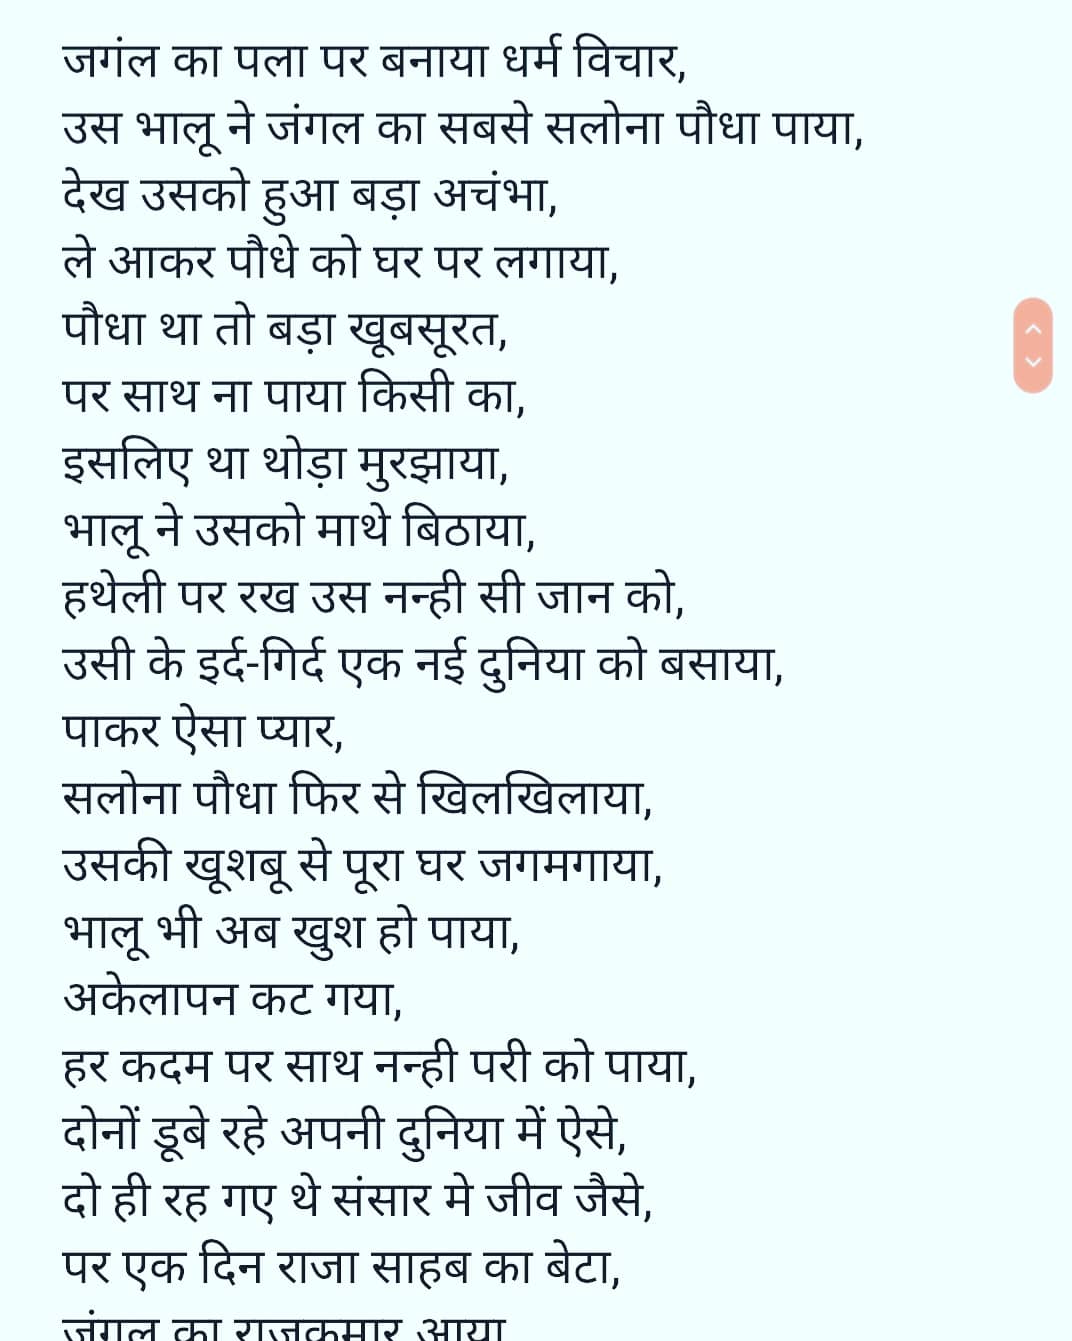 जगंल का पला पर बनाया धर्म विचार,
उस भालू ने जंगल का सबसे सलोना पौधा पाया,
देख उसको हुआ बड़ा अचंभा,
ले आकर पौधे को घर पर लगाया,
पौधा था तो बड़ा खूबसूरत,
पर साथ ना पाया किसी का,
इसलिए था थोड़ा मुरझाया,
भालू ने उसको माथे बिठाया,
हथेली पर रख उस नन्ही सी जान को,
उसी के इर्द-गिर्द एक नई दुनिया को बसाया,
पाकर ऐसा प्यार,
सलोना पौधा फिर से खिलखिलाया,
उसकी खूशबू से पूरा घर जगमगाया,
भालू भी अब खुश हो पाया,
अकेलापन कट गया,
हर कदम पर साथ नन्ही परी को पाया,
दोनों डूबे रहे अपनी दुनिया में ऐसे,
दो ही रह गए थे संसार मे जीव जैसे,
पर एक दिन राजा साहब का बेटा,
जंगल का राजकुमार आया